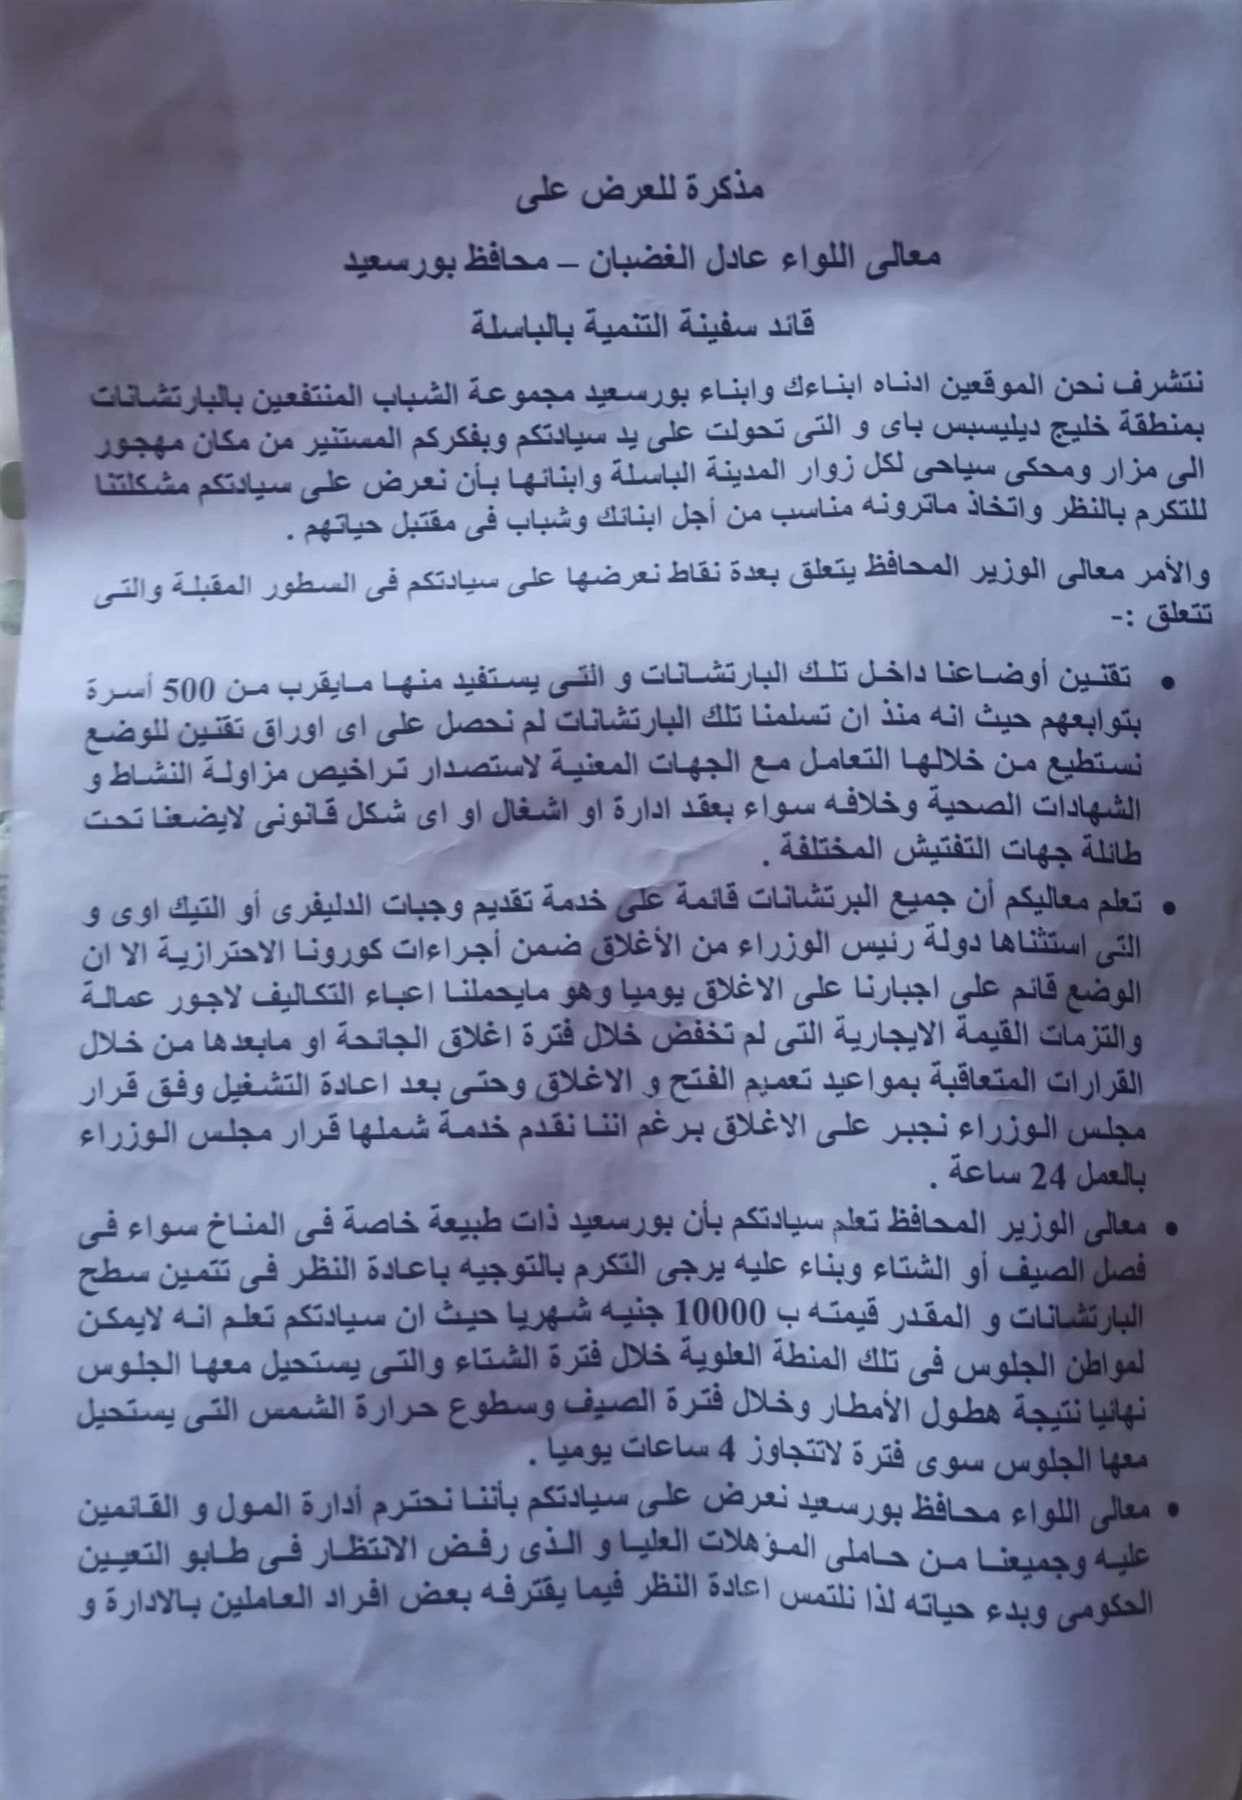 مذكرة للعرض على
معالى اللواء عادل الغضبان – محافظ بورسعيد
قائد سفينة التنمية بالباسلة
نتشرف نحن الموقعين ادناه ابناءك وابناء بورسعيد مجموعة الشباب المنتفعين بالبارتشانات
بمنطقة خليج ديليسبس باى و التى تحولت على يد سيادتكم وبفكركم المستنير من مكان مهجور
الى مزار ومحكى سياحى لكل زوار المدينة الباسلة وابنائها بأن نعرض على سيادتكم مشكلتنا
للتكرم بالنظر واتخاذ ماترونه مناسب من أجل ابنائك وشباب فى مقتبل حياتهم .
والأمر معالى الوزير المحافظ يتعلق بعدة نقاط نعرضها على سيادتكم فى السطور المقبلة والتى
تتعلق :-
• تقنين أوضاعنا داخل تلك البارتشانات و التى يستفيد منها مايقرب من 500 أسرة
بتوابعهم حيث انه منذ ان تسلمنا تلك البارتشانات لم نحصل على اى اوراق تقنين للوضع
نستطيع من خلالها التعامل مع الجهات المعنية لاستصدار تراخيص مزاولة النشاط و
الشهادات الصحية وخلافه سواء بعقد ادارة او اشغال او اى شكل قانونى لايضعنا تحت
طائلة جهات التفتيش المختلفة .
• تعلم معاليكم أن جميع البرتشانات قائمة على خدمة تقديم وجبات الدليفرى أو التيك اوى و
التى استثناها دولة رئيس الوزراء من الأغلاق ضمن أجراءات كورونا الاحترازية الا ان
الوضع قائم على اجبارنا على الاغلاق يوميا وهو مايحملنا اعباء التكاليف لاجور عمالة
والتزمات القيمة الايجارية التى لم تخفض خلال فترة اغلاق الجائحة او مابعدها من خلال
القرارات المتعاقبة بمواعيد تعميم الفتح و الاغلاق وحتى بعد اعادة التشغيل وفق قرار
مجلس الوزراء نجبر على الاغلاق برغم اننا نقدم خدمة شملها قرار مجلس الوزراء
بالعمل 24 ساعة .
• معالى الوزير المحافظ تعلم سيادتكم بأن بورسعيد ذات طبيعة خاصة فى المناخ سواء فى
فصل الصيف أو الشتاء وبناء عليه يرجى التكرم بالتوجيه باعادة النظر فى تتمين سطح
البارتشانات و المقدر قيمته ب 10000 جنيه شهريا حيث ان سيادتكم تعلم انه لايمكن
لمواطن الجلوس فى تلك المنطة العلوية خلال فترة الشتاء والتى يستحيل معها الجلوس
نهائيا نتيجة هطول الأمطار وخلال فترة الصيف وسطوع حرارة الشمس التى يستحيل
معها الجلوس سوى فترة لاتتجاوز 4 ساعات يوميا .
• معالى اللواء محافظ بورسعيد نعرض على سيادتكم بأننا نحترم أدارة المول و القائمين
عليه وجميعنا من حاملى المؤهلات العليا و الذى رفض الانتظار فى طابو التعيين
الحكومى وبدء حياته لذا نلتمس اعادة النظر فيما يقترفه بعض افراد العاملين بالادارة و